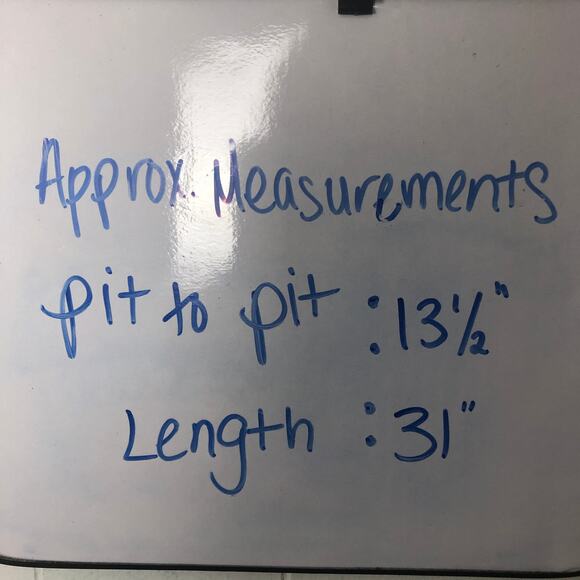 Approx. Measurements
pit to pit : 13 1/2"
Length : 31"